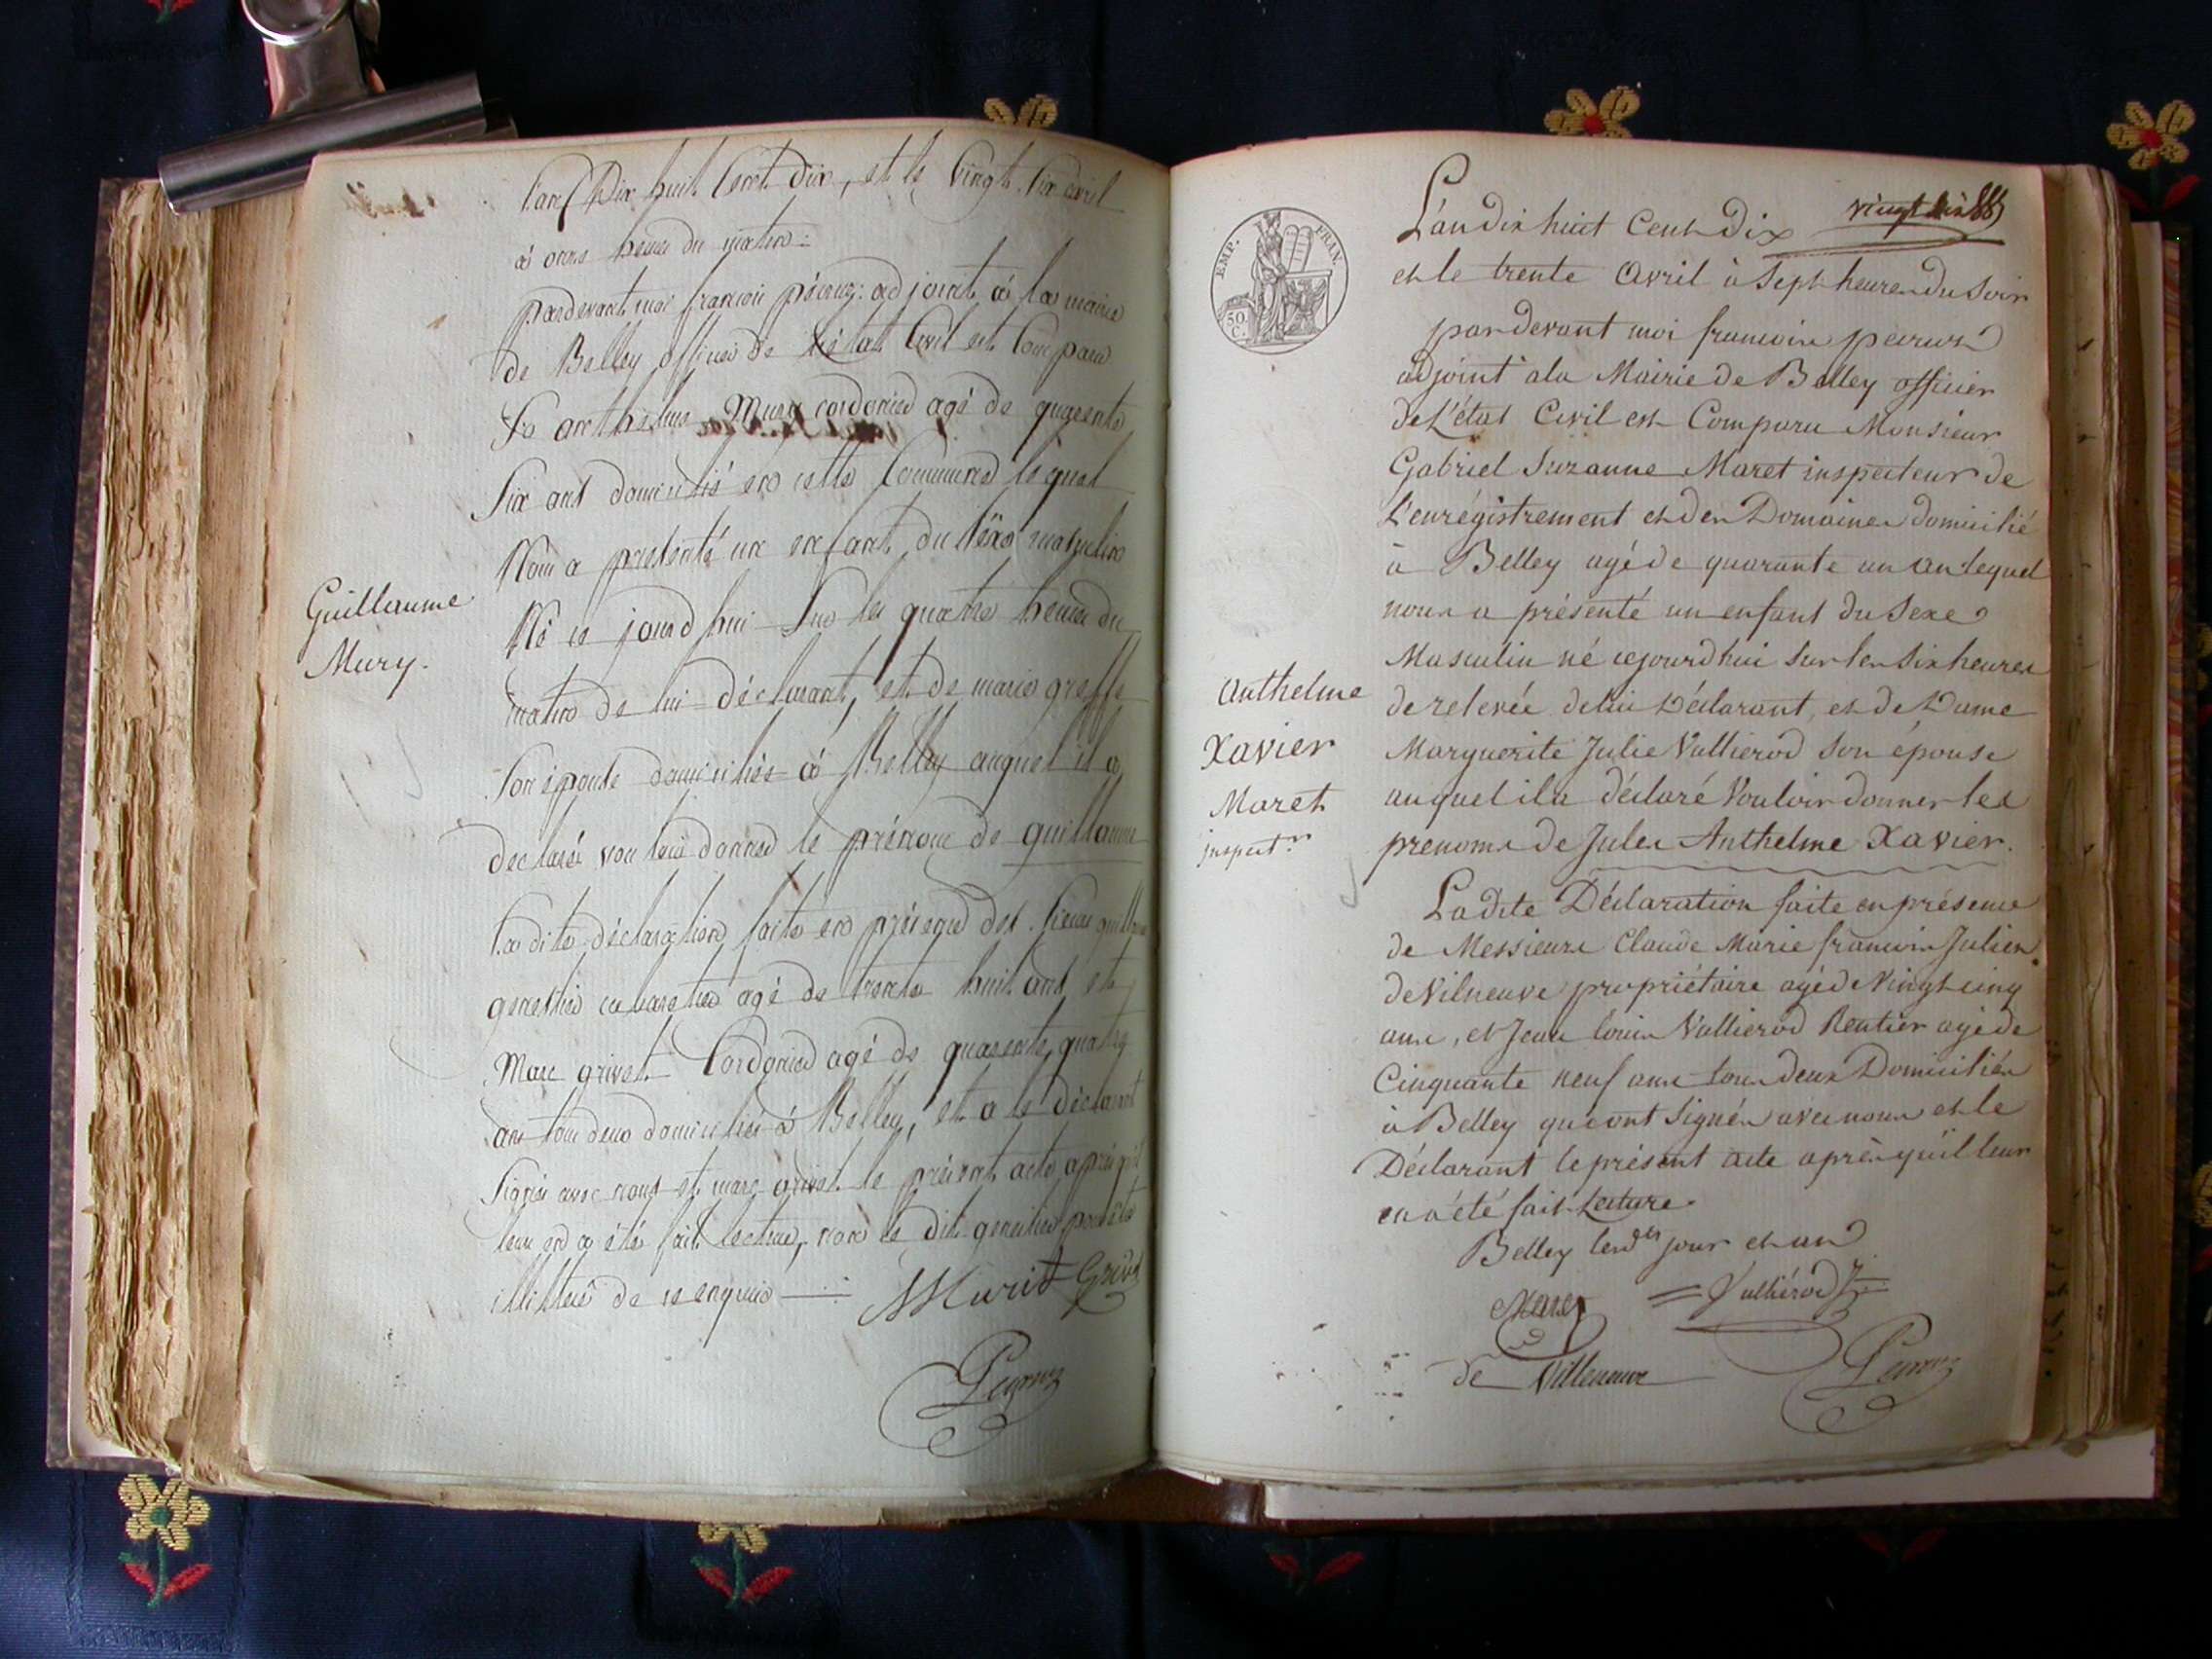 L'an Dix huit Cent Dix, et le Vingt Six avril
à onze heures du matin
pardevant moi françois péeruz adjoint à la mairie
de Belley officier de l'état Civil est Comparu
Sr anthelme Mury cordonier agé de quarente
Six ans domicilié en cette Commune lequel
Nous a presenté un enfant du sexe masculin
Né ce jourd'hui Sur les quatre heures du
matin de lui déclarant, et de marie greffe
Son épouse domiciliée à Belley auquel il a
declaré vouloir donner le prénom de guillaume
la dite déclaration faite en présence des Sieurs
genestier cabaretier agé de trente huit ans et
Marc grivet Cordonier agé de quarente quatre
ans tous deux domiciliés à Belley, et a le déclarant
Signé avec nous et marc grivet le présent acte après qu'il
leur en a été fait lecture, non le dit genestier pour être
illitéré de ce enquis
Murit Grivet
Peyruz
Guillaume
Mury.
EMP. FRAN.
50.
C.
L'an dix huit Cent Dix
et le trente Avril à Sept heures du Soir
par devant moi francois peeruz
adjoint à la Mairie de Belley officier
de L'état Civil est Comparu Monsieur
Gabriel Suzanne Maret inspecteur de
L'enrégistrement et des Domaines domicilié
à Belley agé de quarante un an lequel
nous a présenté un enfant du Sexe
Masculin né cejourd'hui Sur les Six heures
de relevée de lui Déclarant, et de Dame
Marguerite Julie Vulliérod Son épouse
auquel il a déclaré Vouloir donner les
prenoms de Jules Anthelme Xavier.
La dite Déclaration faite en présence
de Messieurs Claude Marie francois Julien
de Vilneuve propriétaire agé de Vingt cinq
ans, et Jean louis Vulliérod Rentier agé de
Cinquante neuf ans tous deux Domiciliés
à Belley qui ont Signés avec nous et le
Déclarant le présent acte après qu'il leur
en a été fait Lecture.
Belley les dts jour et an
Maret Vulliérod
de Villeneuve Peyruz
Anthelme
Xavier
Maret
inspectr